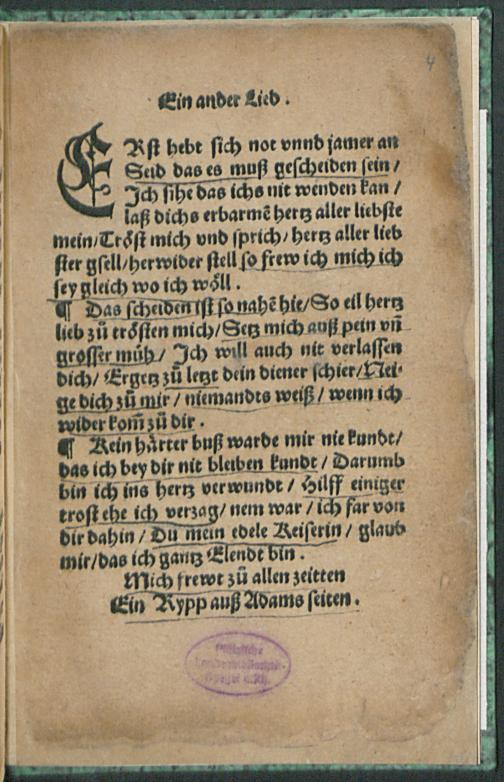 4
Ein ander Lied.
ERst hebt sich not vnnd jamer an
Seid das es muß gescheiden sein /
Ich sihe das ichs nit wenden kan /
laß dichs erbarmē hertz aller liebste
mein/Tröst mich vnd sprich/ hertz aller lieb
ster gsell/herwider stell so frew ich mich ich
sey gleich wo ich wöll.
¶ Das scheiden ist so nahē hie/So eil hertz
lieb zů trösten mich/Setz mich auß pein vñ
grosser müh/ Ich will auch nit verlassen
dich/ Ergetz zů letzt dein diener schier/Nei-
ge dich zů mir / niemandts weiß / wenn ich
wider kom̄ zů dir.
¶ Kein härter buß warde mir nie kundt/
das ich bey dir nit bleiben kundt / Darumb
bin ich ins hertz verwundt / Hilff einiger
trost ehe ich verzag/ nem war / ich far von
dir dahin / Du mein edele Keiserin / glaub
mir/das ich gantz Elendt bin.
Mich frewt zů allen zeitten
Ein Rypp auß Adams seiten.
Pfälzische
Landesbibliothek
Speyer a. Rh.